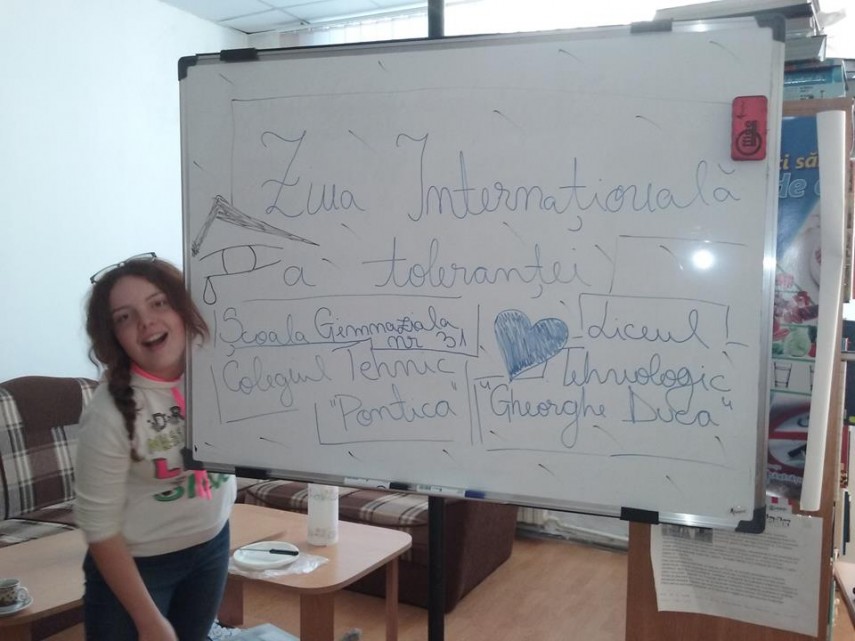 Ziua Internațională
a toleranței
Școala Gimnazială
nr 31
Colegiul Tehnic
"Pontica"
Liceul
Tehnologic
"Gheorghe Duca"